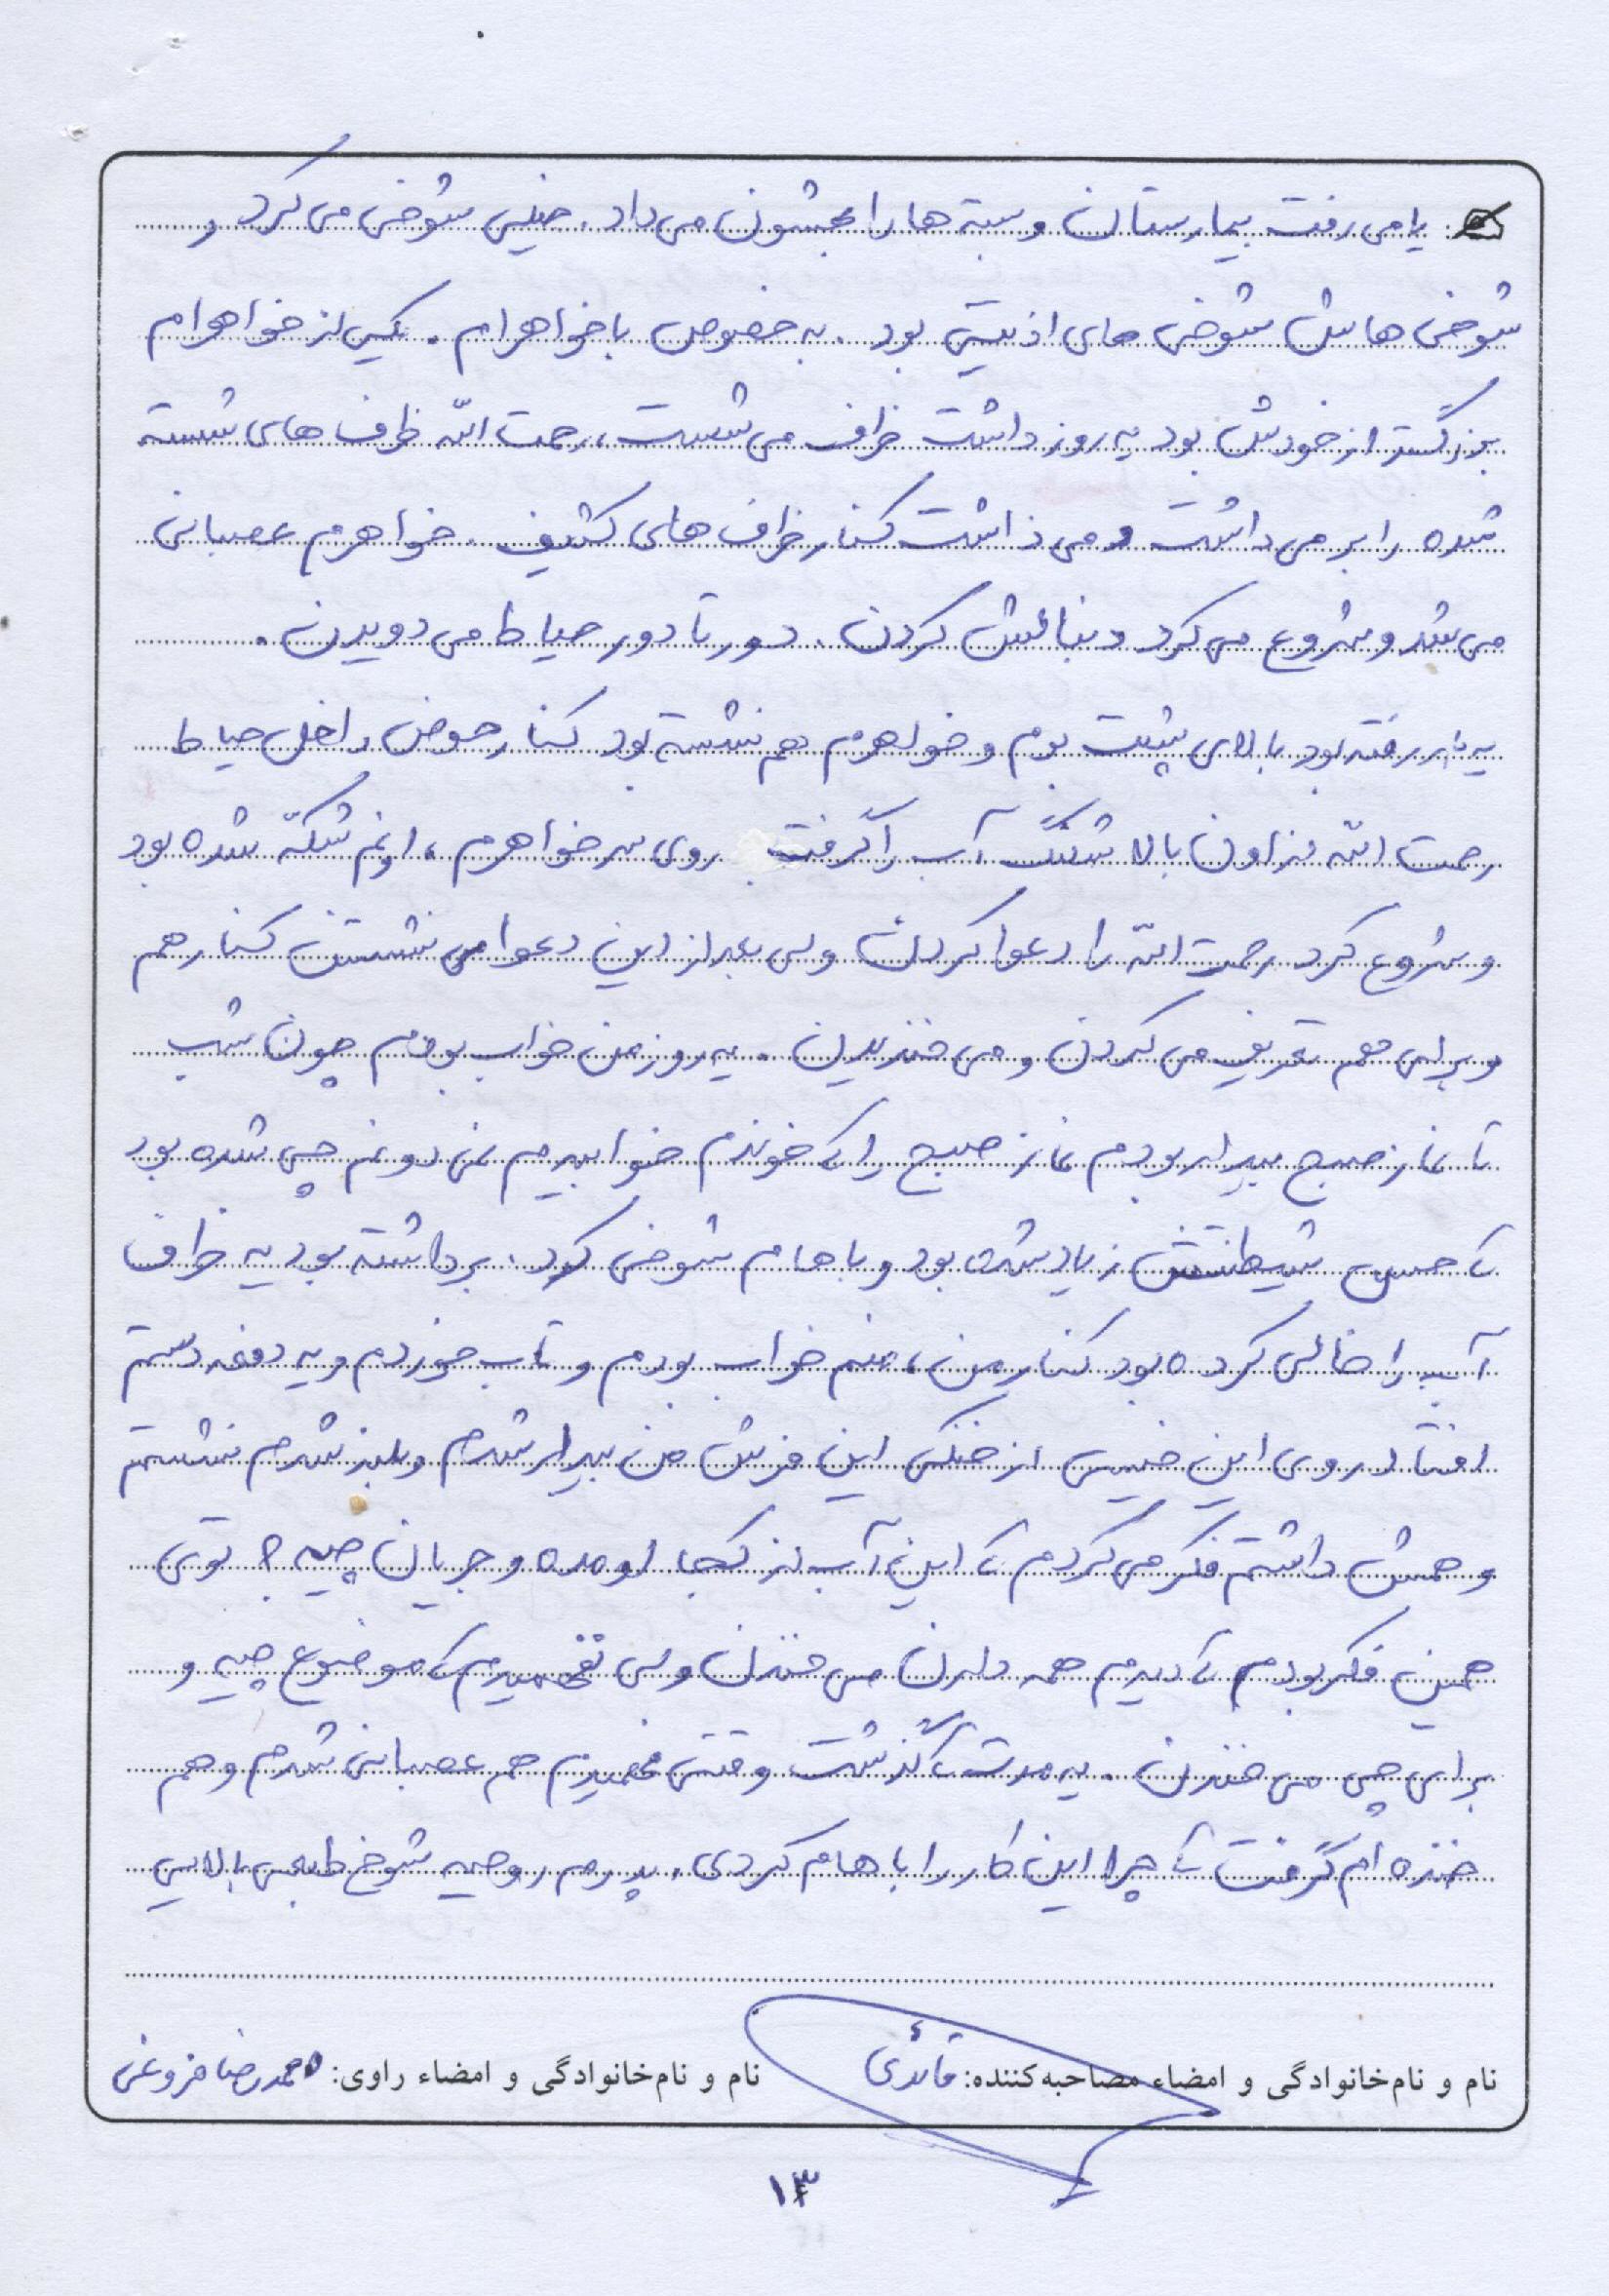 یا می رفت بیمارستان و بسته ها را بهشون می داد. خیلی شوخی می کرد و
شوخی هاش شوخی های اذیتی بود. به خصوص با خواهرام. یکی از خواهرام
بزرگتر از خودش بود یه روز داشت ظرف می شست، رحمت الله ظرف های شسته
شده را بر می داشت و می ذاشت کنار ظرف های کثیف. خواهرم عصبانی
می شد و شروع می کرد دنبالش کردن. دور تا دور حیاط می دویدن.
یه بار رفته بود بالای پشت بوم و خواهرم هم نشسته بود کنار حوض داخل حیاط
رحمت الله از اون بالا شلنگ آب را گرفت روی سر خواهرم، اونم شکه شده بود
و شروع کرد رحمت الله را دعوا کردن ولی بعد از این دعوا می نشستن کنار هم
و برای هم تعریف می کردن و می خندیدن. یه روز من خواب بودم چون شب
تا نماز صبح بیدار بودم نماز صبح را که خوندم خوابیدم نمی دونم چی شده بود
که حس شیطنتش زیاد شده بود و باهام شوخی کرد. برداشته بود یه ظرف
آب را خالی کرده بود کنار من، منم خواب بودم و تاب خوردم و یه دفعه دستم
افتاد روی این خیسی از خنکی این فرش من بیدار شدم و بلند شدم نشستم
و همش داشتم فکر می کردم که این آب از کجا اومده و جریان چیه؟ توی
همین فکر بودم که دیدم همه دارن می خندن ولی نفهمیدم که موضوع چیه و
برای چی می خندن. یه مدت که گذشت وقتی فهمیدم هم عصبانی شدم و هم
خنده ام گرفت که چرا این کار را باهام کردی. پدرم روحیه شوخ طبعی بالایی
نام و نام‌خانوادگی و امضاء مصاحبه‌کننده: قائدی نام و نام‌خانوادگی و امضاء راوی: محمدرضا فروغی
۱۳